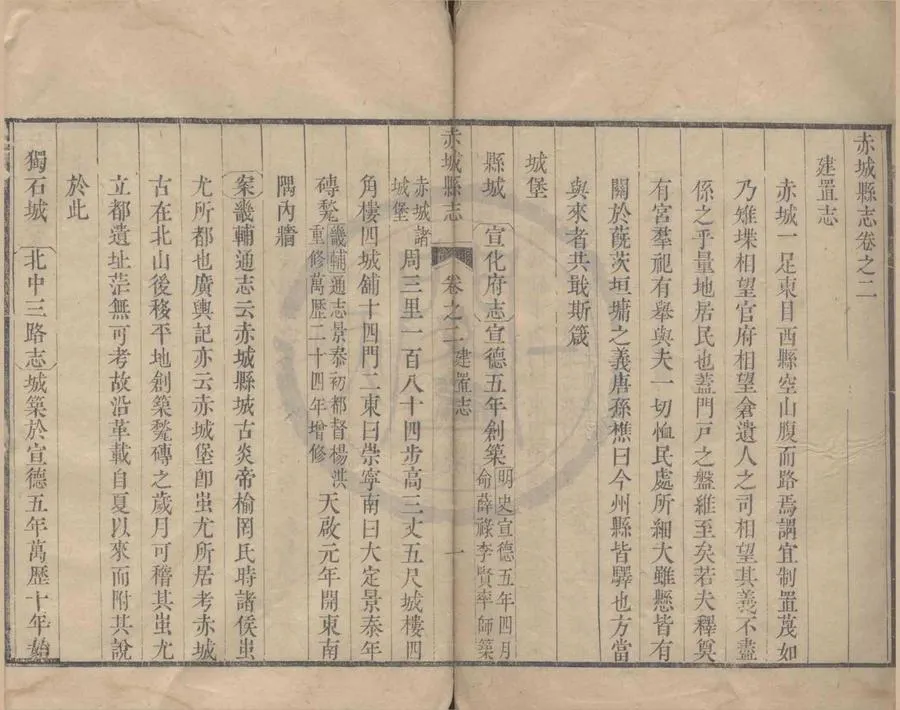 赤城縣志卷之二
建置志
赤城一足東目西縣空山腹而路焉謂宜制置蔑如
乃雉堞相望官府相望倉遺人之司相望其義不盡
係之乎量地居民也蓋門戸之盤維至矣若夫釋奠
有宮羣祀有舉與夫一切恤民處所細大雖懸皆有
關於蓻茨垣墉之義唐孫樵曰今州縣皆驛也方當
與來者共戢斯箴
城堡
縣城 宣化府志宣德五年創築明史宣德五年四月
命薛祿李賢率師築
赤城縣志 卷之二 建置志 一
赤城諸
城堡 周三里一百八十四步高三丈五尺城樓四
角樓四城舖十四門二東曰崇寧南曰大定景泰年
磚甃畿輔通志景泰初都督楊洪
重修萬歷二十四年增修 天啟元年開東南
隅內牆
案畿輔通志云赤城縣城古炎帝榆罔氏時諸侯蚩
尤所都也廣輿記亦云赤城堡卽蚩尤所居考赤城
古在北山後移平地創築甃磚之歲月可稽其蚩尤
立都遺址茫無可考故沿革載自夏以來而附其說
於此
獨石城 北中三路志城築於宣德五年萬歷十年始